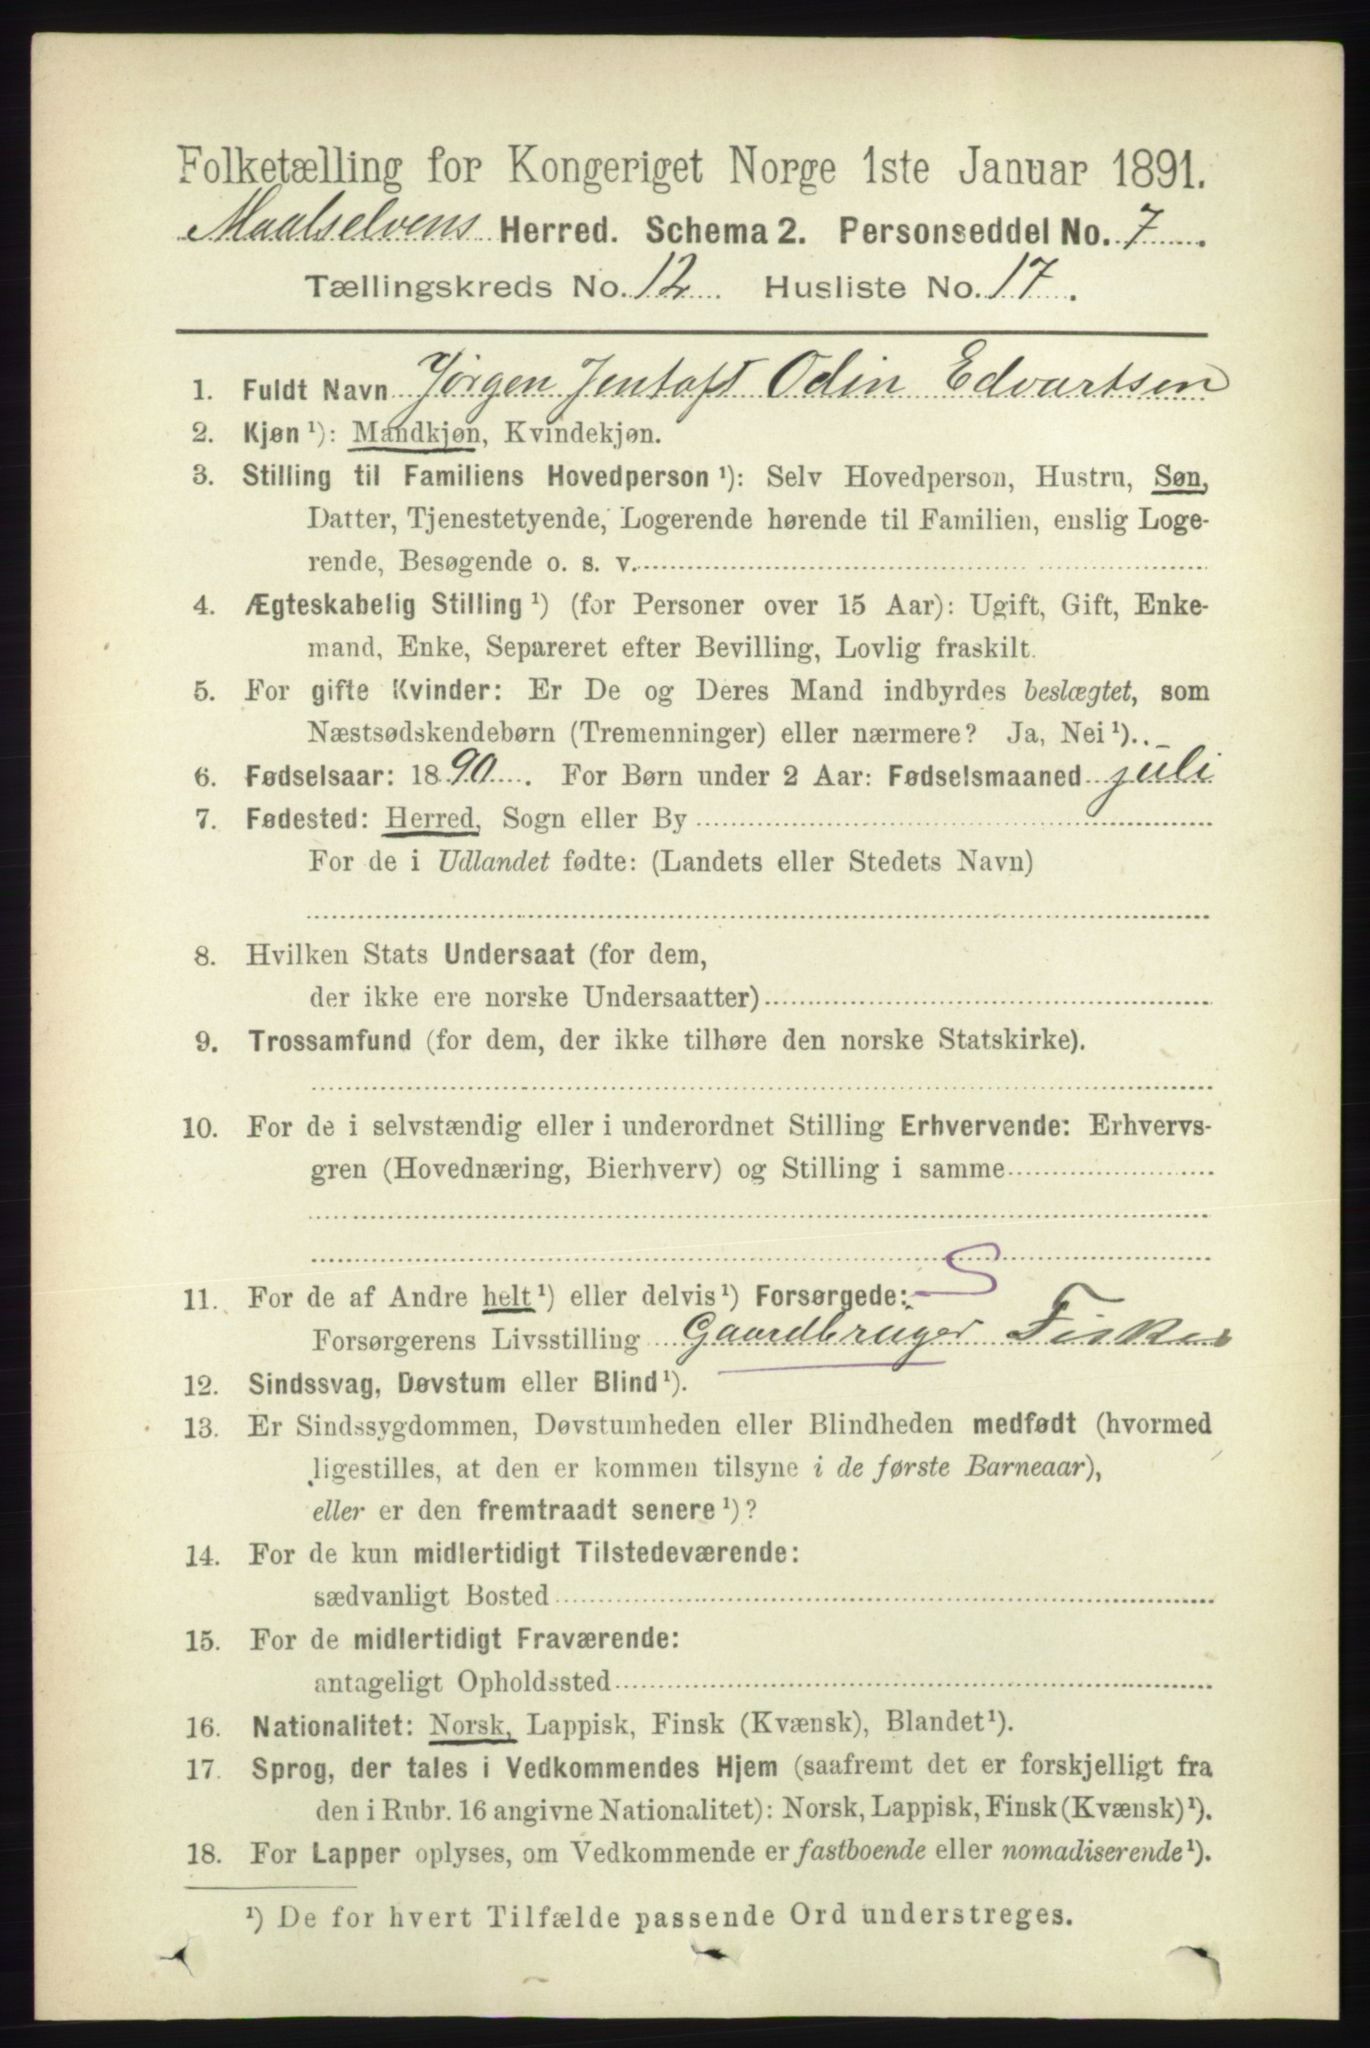 Folketælling for Kongeriget Norge 1ste Januar 1891.
Maalselvens Herred. Schema 2. Personseddel No. 7
Tællingskreds No. 12 Husliste No. 17.
1. Fuldt Navn Jørgen Jentoft Odin Edvartsen
2. Kjøn ¹): Mandkjøn, Kvindekjøn.
3. Stilling til Familiens Hovedperson ¹): Selv Hovedperson, Hustru, Søn,
Datter, Tjenestetyende, Logerende hørende til Familien, enslig Loge-
rende, Besøgende o. s. v.
4. Ægteskabelig Stilling ¹) (for Personer over 15 Aar): Ugift, Gift, Enke-
mand, Enke, Separeret efter Bevilling, Lovlig fraskilt.
5. For gifte Kvinder: Er De og Deres Mand indbyrdes beslægtet, som
Næstsødskendebørn (Tremenninger) eller nærmere? Ja, Nei ¹).
6. Fødselsaar: 1890. For Børn under 2 Aar: Fødselsmaaned juli
7. Fødested: Herred, Sogn eller By
For de i Udlandet fødte: (Landets eller Stedets Navn)
8. Hvilken Stats Undersaat (for dem,
der ikke ere norske Undersaatter)
9. Trossamfund (for dem, der ikke tilhøre den norske Statskirke).
10. For de i selvstændig eller i underordnet Stilling Erhvervende: Erhvervs-
gren (Hovednæring, Bierhverv) og Stilling i samme
S
11. For de af Andre helt ¹) eller delvis ¹) Forsørgede:
Forsørgerens Livsstilling Gaardbruger Fisker
12. Sindssvag, Døvstum eller Blind ¹).
13. Er Sindssygdommen, Døvstumheden eller Blindheden medfødt (hvormed
ligestilles, at den er kommen tilsyne i de første Barneaar),
eller er den fremtraadt senere ¹)?
14. For de kun midlertidigt Tilstedeværende:
sædvanligt Bosted
15. For de midlertidigt Fraværende:
antageligt Opholdssted
16. Nationalitet: Norsk, Lappisk, Finsk (Kvænsk), Blandet ¹).
17. Sprog, der tales i Vedkommendes Hjem (saafremt det er forskjelligt fra
den i Rubr. 16 angivne Nationalitet): Norsk, Lappisk, Finsk (Kvænsk) ¹).
18. For Lapper oplyses, om Vedkommende er fastboende eller nomadiserende ¹).
¹) De for hvert Tilfælde passende Ord understreges.